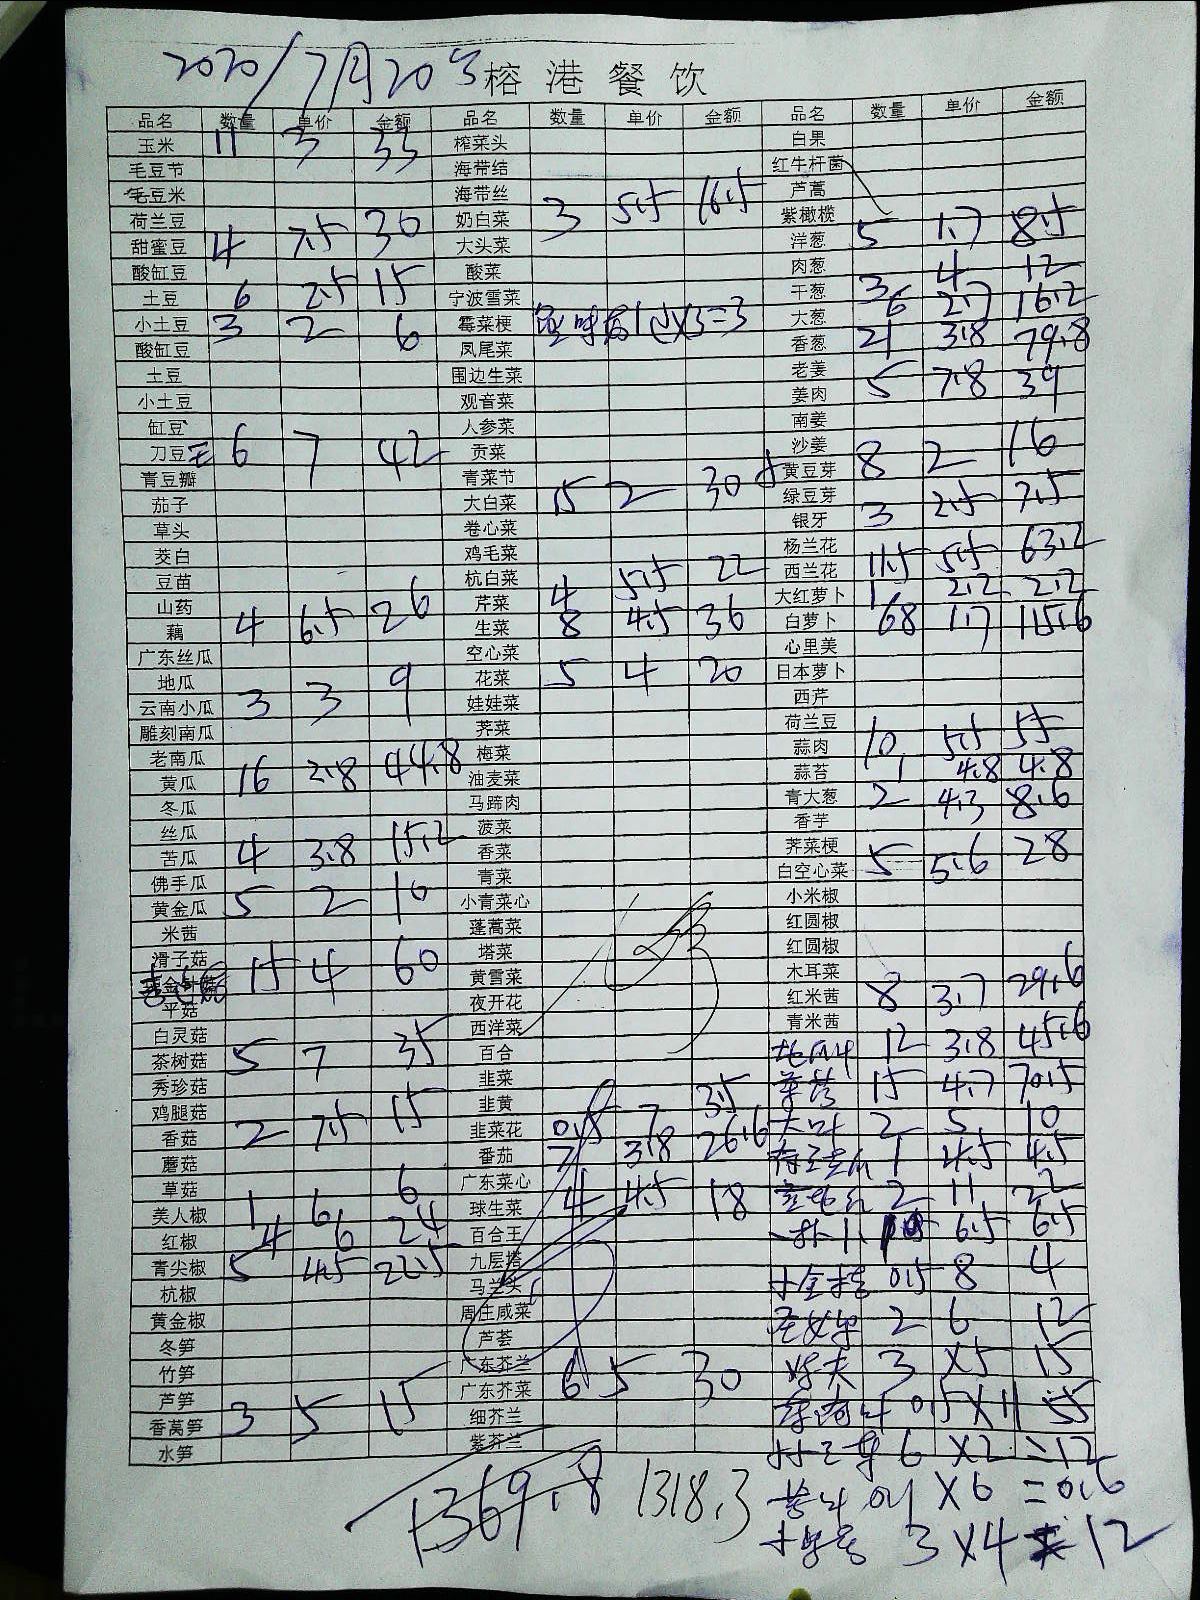 2020/7月20号 榕港餐饮
品名 数量 单价 金额 品名 数量 单价 金额 品名 数量 单价 金额
玉米 11 3 33 榨菜头 白果
毛豆节 海带结 红牛杆菌
毛豆米 海带丝 芦蒿
荷兰豆 奶白菜 3 5.5 16.5 紫橄榄
甜蜜豆 4 7.5 30 大头菜 洋葱 5 1.7 8.5
酸缸豆 酸菜 肉葱
土豆 6 2.5 15 宁波雪菜 干葱 3 4 12
小土豆 3 2 6 霉菜梗 1 X3=3 大葱 6 2.7 16.2
酸缸豆 凤尾菜 香葱 21 3.8 79.8
土豆 围边生菜 老姜
小土豆 观音菜 姜肉 5 7.8 39
缸豆 人参菜 南姜
刀豆 6 7 42 贡菜 沙姜
青豆瓣 青菜节 黄豆芽 8 2 16
茄子 大白菜 15 2 30 绿豆芽
草头 卷心菜 银牙 3 2.5 7.5
茭白 鸡毛菜 杨兰花
豆苗 杭白菜 西兰花 11.5 5.5 63.2
山药 芹菜 4 5.5 22 大红萝卜 1 2.2 2.2
藕 4 6.5 26 生菜 8 4.5 36 白萝卜 68 1.7 115.6
广东丝瓜 空心菜 心里美
地瓜 花菜 5 4 20 日本萝卜
云南小瓜 3 3 9 娃娃菜 西芹
雕刻南瓜 荠菜 荷兰豆
老南瓜 梅菜 蒜肉 10 5.5 55
黄瓜 16 2.8 44.8 油麦菜 蒜苔 1 4.8 4.8
冬瓜 马蹄肉 青大葱 2 4.3 8.6
丝瓜 菠菜 香芋
苦瓜 4 3.8 15.2 香菜 荠菜梗
佛手瓜 青菜 白空心菜 5 5.6 28
黄金瓜 5 2 10 小青菜心 小米椒
米茜 蓬蒿菜 红圆椒
滑子菇 塔菜 红圆椒
金针菇 15 4 60 黄雪菜 木耳菜
平菇 夜开花 红米茜 8 3.7 29.6
白灵菇 西洋菜 青米茜
茶树菇 5 7 35 百合 12 3.8 45.6
秀珍菇 韭菜 15 4.7 70.5
鸡腿菇 韭黄 大叶 2 5 10
香菇 2 7.5 15 韭菜花 0.5 7 3.5 1 4.5 4.5
蘑菇 番茄 7 3.8 26.6 2 11 22
草菇 广东菜心 6.5 6.5
美人椒 1 6 6 球生菜 4 4.5 18 0.5 8 4
红椒 4 6 24 百合王 圣女果 2 6 12
青尖椒 5 4.5 22.5 九层塔 3 X5 15
杭椒 马兰头 0.5 X 11 5.5
黄金椒 周庄咸菜 6 X2 =12
冬笋 芦荟 0.1 X6 =0.6
竹笋 广东芥兰 3 X4 = 12
芦笋 广东芥菜 6 5 30
香莴笋 3 5 15 细芥兰
水笋 紫芥兰
1369.8 1318.3